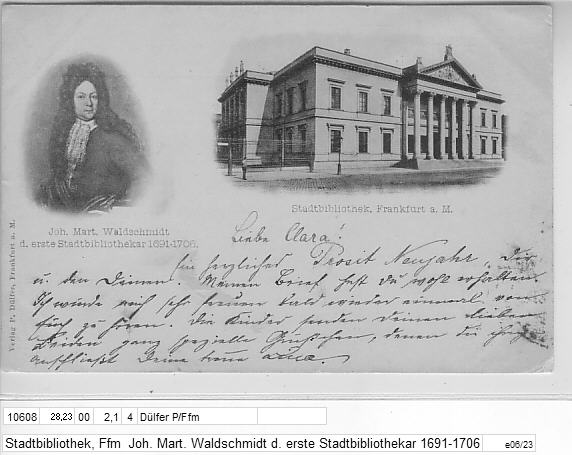 Joh. Mart. Waldschmidt
d. erste Stadtbibliothekar 1691-1706.
Stadtbibliothek, Frankfurt a. M.
Verlag P. Dülfer, Frankfurt a. M.
Liebe Clara!
Ein herzliches Prosit Neujahr Dir
u. den Deinen. Meinen Brief hast du wohl erhalten.
Ich würde mich sehr freuen bald wieder einmal von
Euch zu hören. Die Kinder senden deinen lieben
Beiden ganz spezielle Grüßchen, denen die ihrigen
anschließt Deine treue
10608 28,23 00 2,1 4 Dülfer P/Ffm
Stadtbibliothek, Ffm Joh. Mart. Waldschmidt d. erste Stadtbibliothekar 1691-1706 e06/23